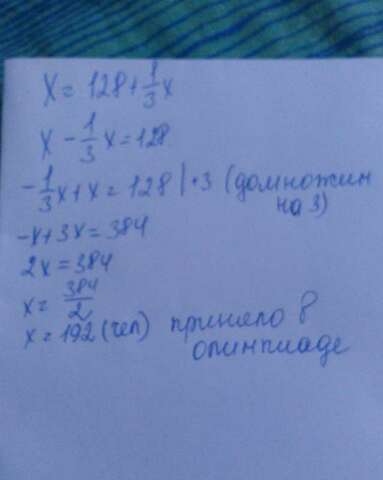 x = 128 + 1/3 x
x - 1/3 x = 128
- 1/3 x + x = 128 | · 3 (домножим
на 3)
-x + 3x = 384
2x = 384
x = 384/2
x = 192 (чел) приняло в
олимпиаде